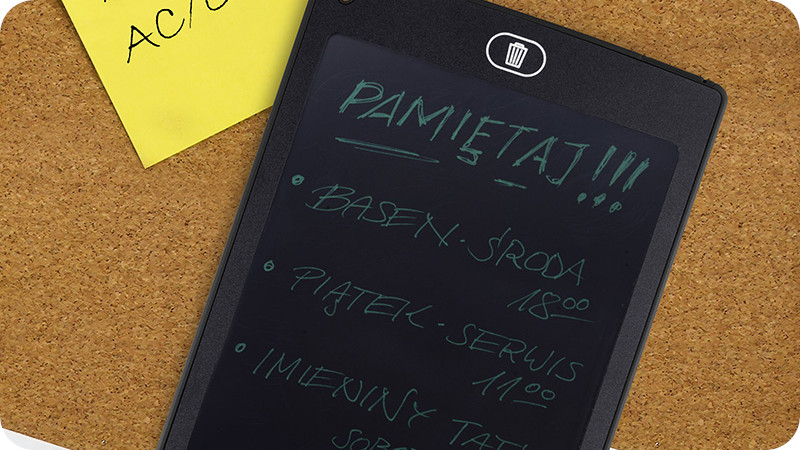 AC/
PAMIĘTAJ!!!
• BASEN - ŚRODA
18⁰⁰
• PIĄTEK - SERWIS
11⁰⁰
• IMIENINY